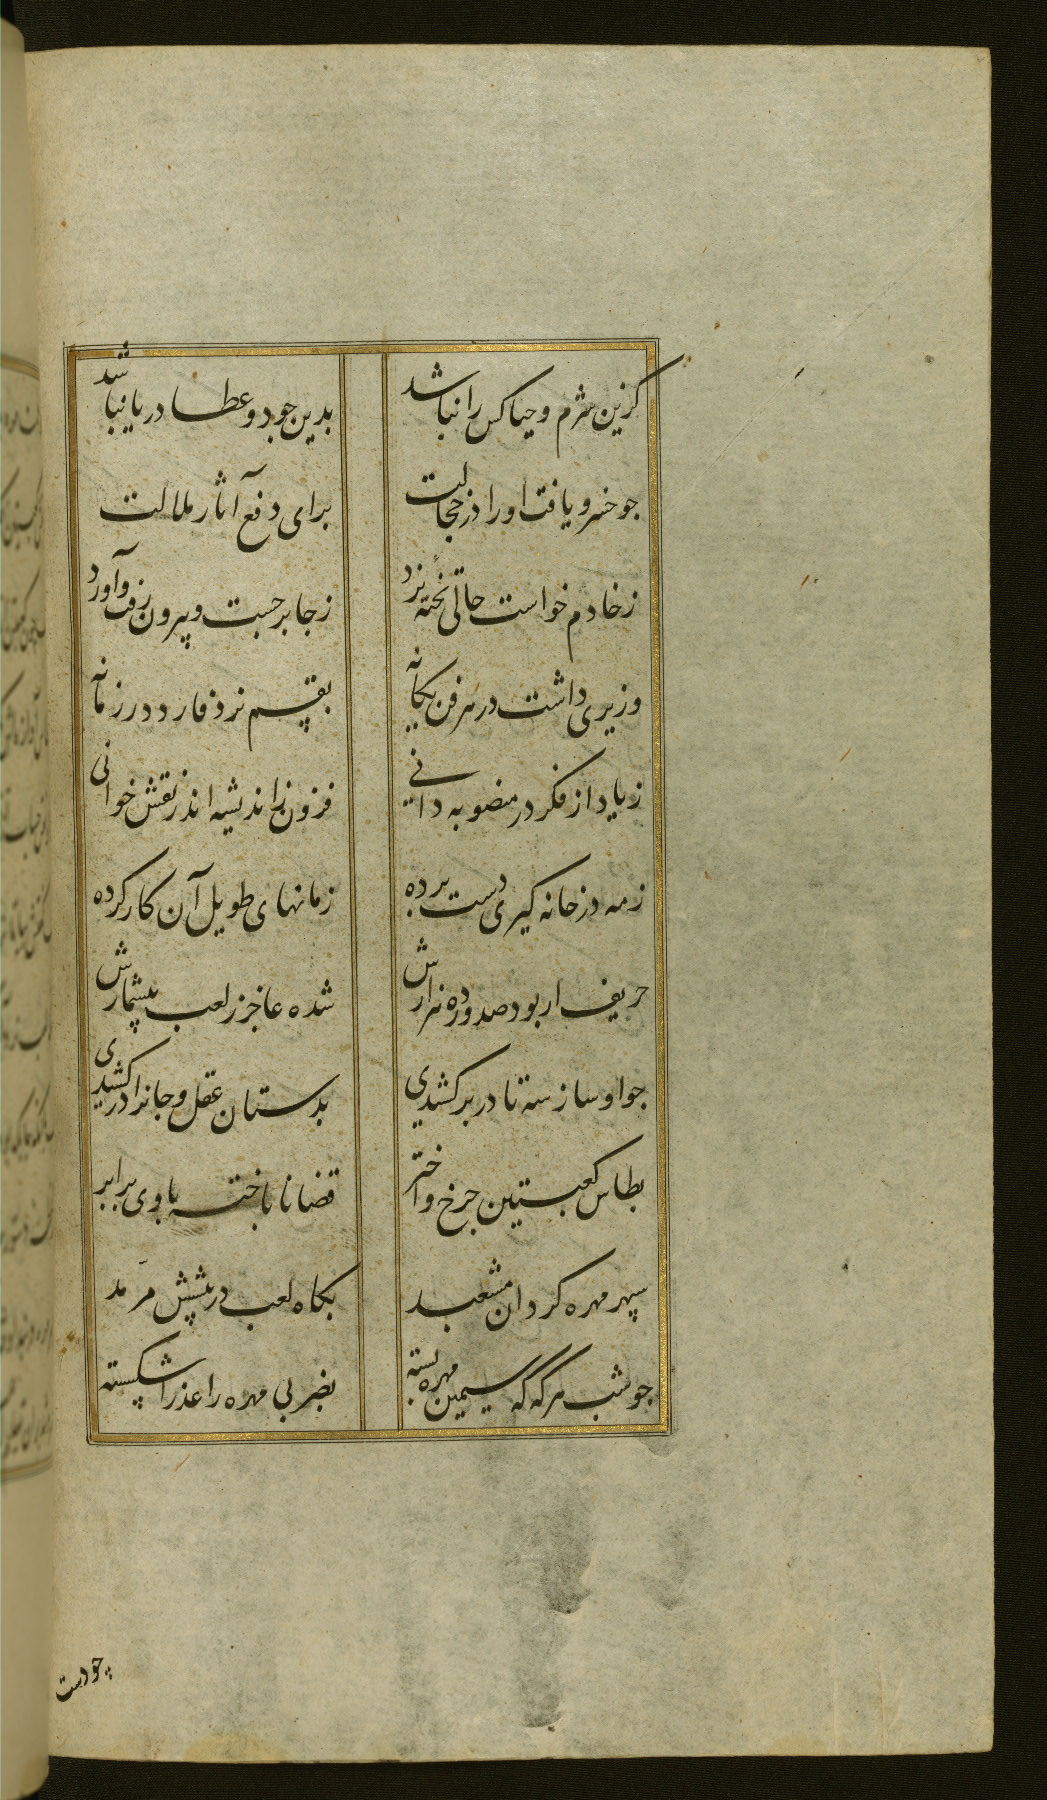 کزین شرم و حیا کس را نباشد
بدین جود و عطا دریا نباشد
جو خسرو یافت اورا در خجالت
برای دفع آثار ملالت
زخادم خواست حالی تخته نرد
زجا برجست وبیرون رفت وآورد
وزیری داشت در هر فن یکانه
بقسم نرد فارد در زمانه
زیاد از فکر در منصوبه دانی
فزون زاندیشه اندر نقش خوانی
زمه در خانه کیری دست برده
زمانهای طویل آن کار کرده
حریف ار بود صد ور ده هزارش
شده عاجز زلعب بیشمارش
جو او ساز سه تا در بر کشیدی
بدستان عقل وجانرا در کشیدی
بطاس کعبتین جرخ واختر
قضا نا باخته باوی برابر
سپهر مهره کردان مشعبد
بکاه لعب در پیشش
جو شب هرکه که سیمین مهره بسته
بضربی مهره را عذرا شکسته
چو دست